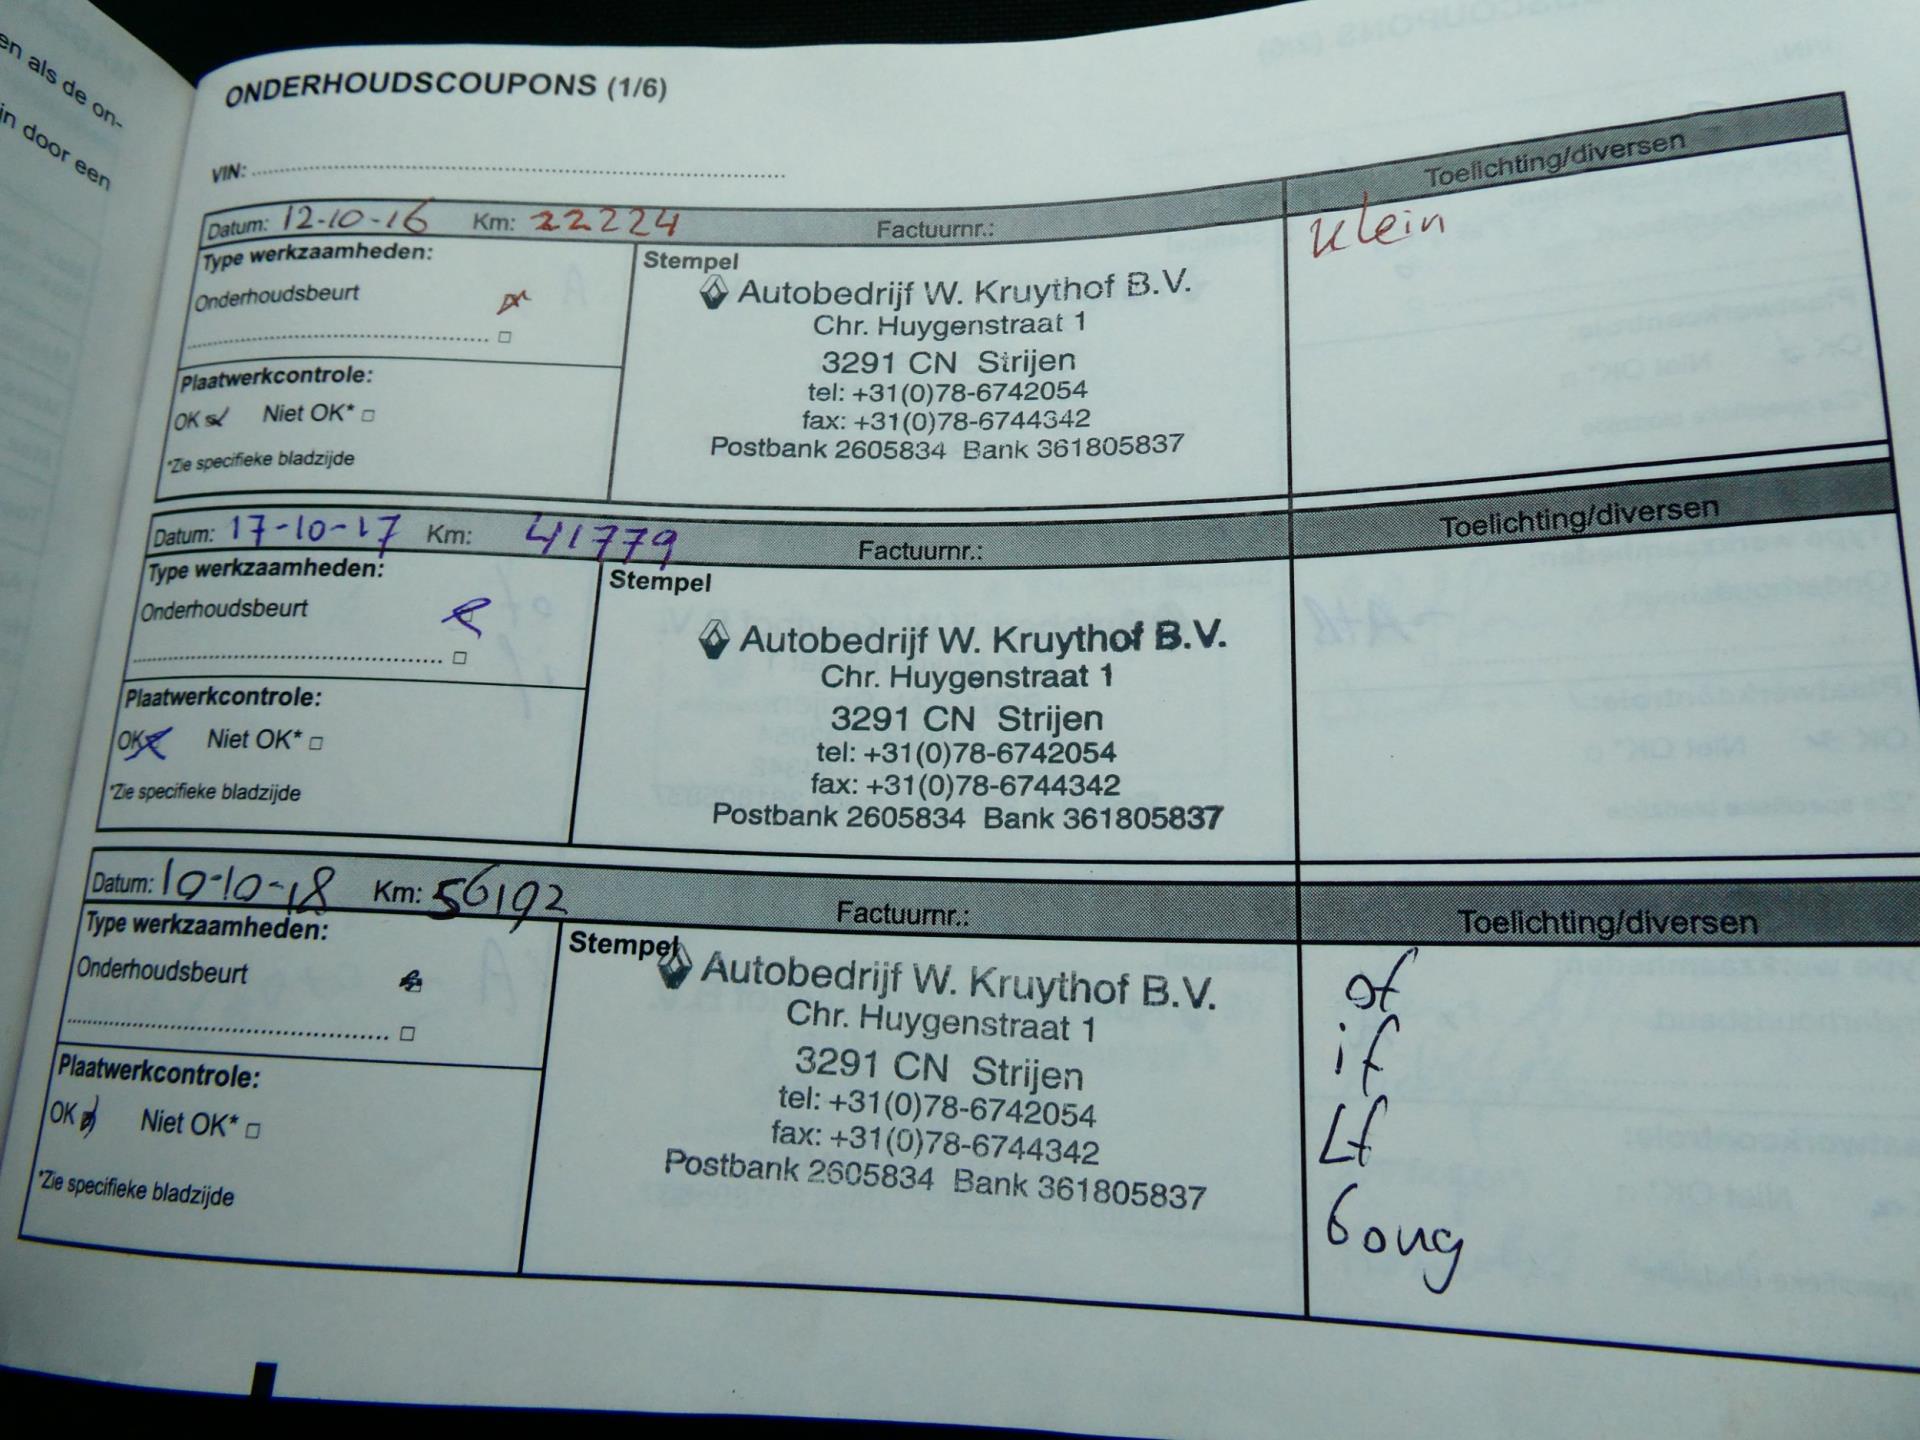 en als de on-
in door een
ONDERHOUDSCOUPONS (1/6)
VIN:
Datum: 12-10-16 Km: 22224 Factuurnr.: Toelichting/diversen
Type werkzaamheden:
Onderhoudsbeurt
Plaatwerkcontrole:
OK Niet OK*
*Zie specifieke bladzijde
Stempel
Autobedrijf W. Kruythof B.V.
Chr. Huygenstraat 1
3291 CN Strijen
tel: +31(0)78-6742054
fax: +31(0)78-6744342
Postbank 2605834 Bank 361805837
Klein
Datum: 17-10-17 Km: 41779 Factuurnr.: Toelichting/diversen
Type werkzaamheden:
Onderhoudsbeurt
Plaatwerkcontrole:
OK Niet OK*
*Zie specifieke bladzijde
Stempel
Autobedrijf W. Kruythof B.V.
Chr. Huygenstraat 1
3291 CN Strijen
tel: +31(0)78-6742054
fax: +31(0)78-6744342
Postbank 2605834 Bank 361805837
Datum: 10-10-18 Km: 56192 Factuurnr.: Toelichting/diversen
Type werkzaamheden:
Onderhoudsbeurt
Plaatwerkcontrole:
OK Niet OK*
*Zie specifieke bladzijde
Stempel
Autobedrijf W. Kruythof B.V.
Chr. Huygenstraat 1
3291 CN Strijen
tel: +31(0)78-6742054
fax: +31(0)78-6744342
Postbank 2605834 Bank 361805837
of
if
Lf